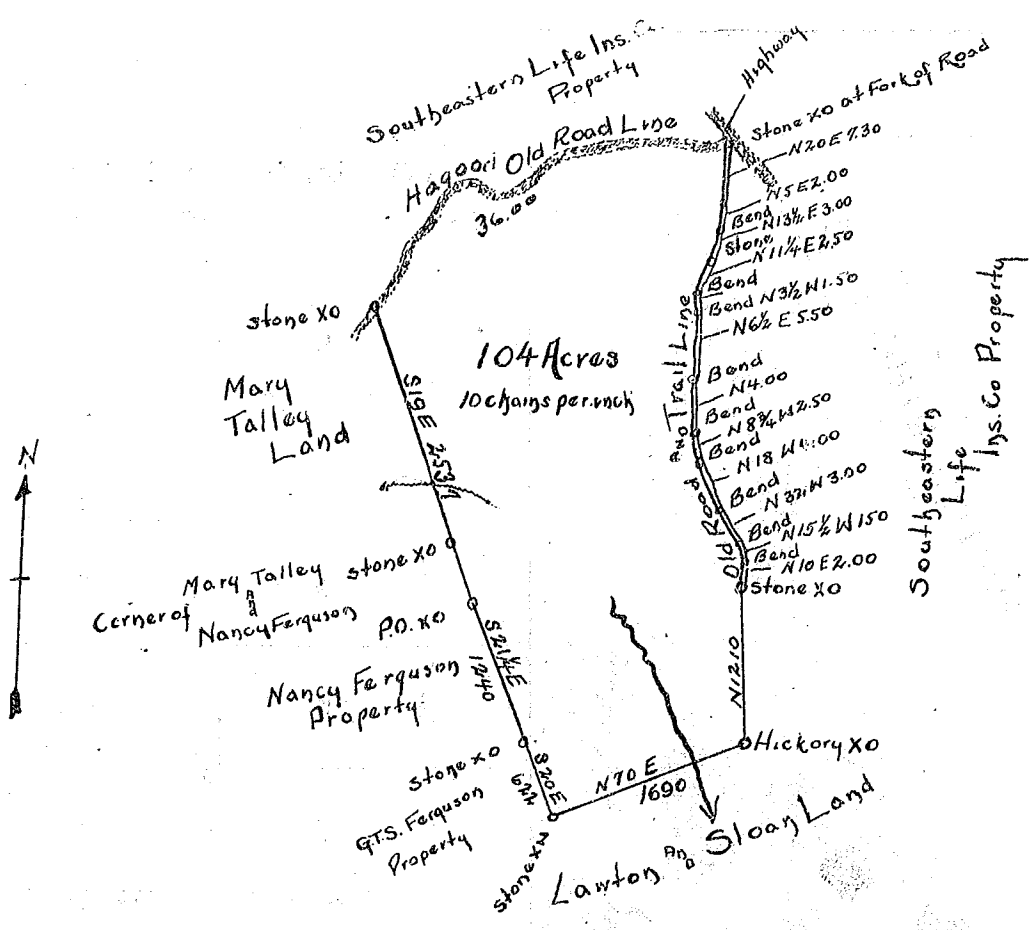 Southeastern Life Ins. Co.
Property
Highway
Stone XO at Fork of Road
Old Road Line
36.00
N20E 7.30
N5E2.00
Bend
N13½ E 3.00
Stone
N11¼E2.50
Bend
Bend N3½ W1.50
N6½ E 5.50
Bend
N4.00
Bend
N8¾ W2.50
Bend
N18 W
Bend
W 3.00
Bend
N15½ W 150
Bend
N10E2.00
Stone XO
Old Road AND Trail Line
Southeastern
Life
Ins. Co Property
stone XO
104 Acres
10 chains per inch
Mary
Talley
Land
S19E
N
Mary Talley
and
Nancy Ferguson
Corner of
stone XO
P.O. XO
S21¼E
1240
Nancy Ferguson
Property
stone XO
S20E
622
G.T.S. Ferguson
Property
N70E
1690
N1210
Hickory XO
Lawton AND Sloan Land